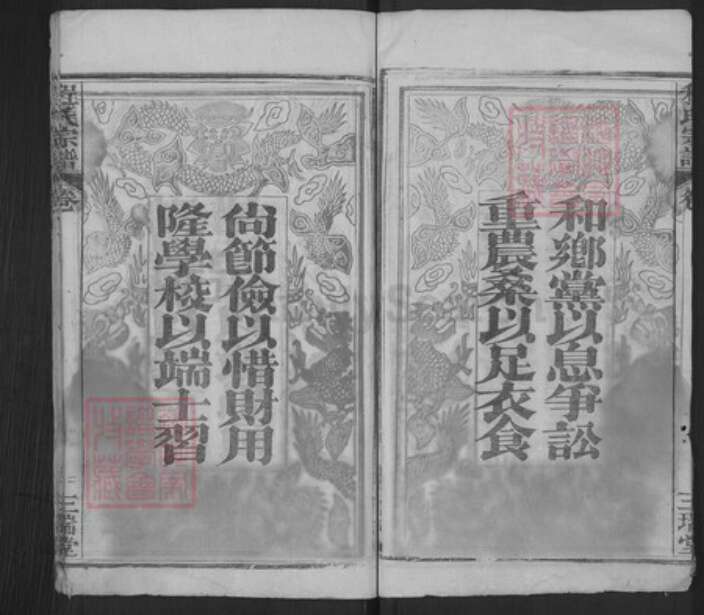 和鄉黨以息爭訟
重農桑以足衣食
尙節儉以惜財用
隆學校以端士習
氏宗譜
卷
三瑞堂
三瑞堂